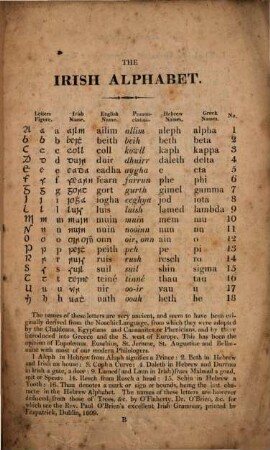 THE
IRISH ALPHABET.
Letters Irish English Pronun- Hebrew Greek No.
Figure. Name. Name. ciation. Names. Names.
A a a ailm ailim allim aleph alpha 1
b b b beiṫ beith beih beth beta 2
C c c coll coll kowll kaph kappa 3
D d d duir duir dhuirr daleth delta 4
e e e eaḋa eadha aygha e eta 5
F f f fearn fearn farrun phe phi 6
g g g gort gort gurth gimel gamma 7
I i i ioġa iogha eeghya jod iota 8
L l l luis luis luish lamed lambda 9
M m m muin muin muin mem mu 10
N n n nuin nuin nooinn nun nu 11
O o o oir, oin oir, una ain o 12
P p p peiṫ peith peh pe pi 13
R r r ruis ruis rush resch ro 14
S s s suil suil suil shin sigma 15
T t t teine teiné tinné than tau 16
U u u uir oo-ir vau upsilon 17
h h h uaṫ oath ooah heth he 18
The names of these letters are very ancient, and seem to have been ori-
ginally derived from the Noachic Language, from which they were adopted
by the Chaldeans, Egyptians and Canaanites or Phœnicians, and by these
introduced into Greece and the S. west of Europe. This has been the
opinion of Eupolemus, Eusebius, St. Jerome, St. Augustine and Bellar-
mine with most of our modern Philologers.
1 Aleph in Hebrew from Aluph signifies a Prince : 2. Beth in Hebrew
and Irish an house: 3. Cophu Curve: 4. Daleth in Hebrew and Duruus
in Irish a gate, a door : 9. Lamed / Lann in Irish) from Malmad a goad,
spit or Spear: 14. Resch from Rosch a head: 15. Schin in Hebrew a
Tooth : 16. Than denotes a mark or sign or bounds, being the last cha-
racter in the Hebrew Alphabet. The names of those letters are however
deduced from those of Trees, &c. by O'Flaherty, Dr. O'Brien, &c. for
which see the Rev. Paul O'Brien's excellent Irish Grammar, printed by
Fitzpatrick, Dublin, 1809.
B